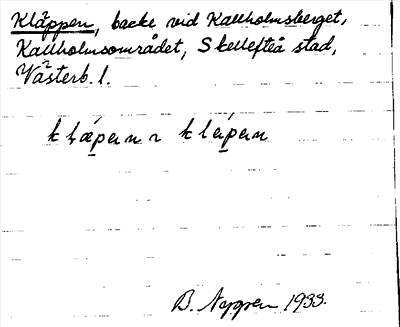 Kläppen, backe vid Kallholmsberget,
Kallholmsområdet, Skellefteå stad,
Västerb. l.
kḷæ̀p̲ən ~ klèp̲ən
B. Nygren 1933.